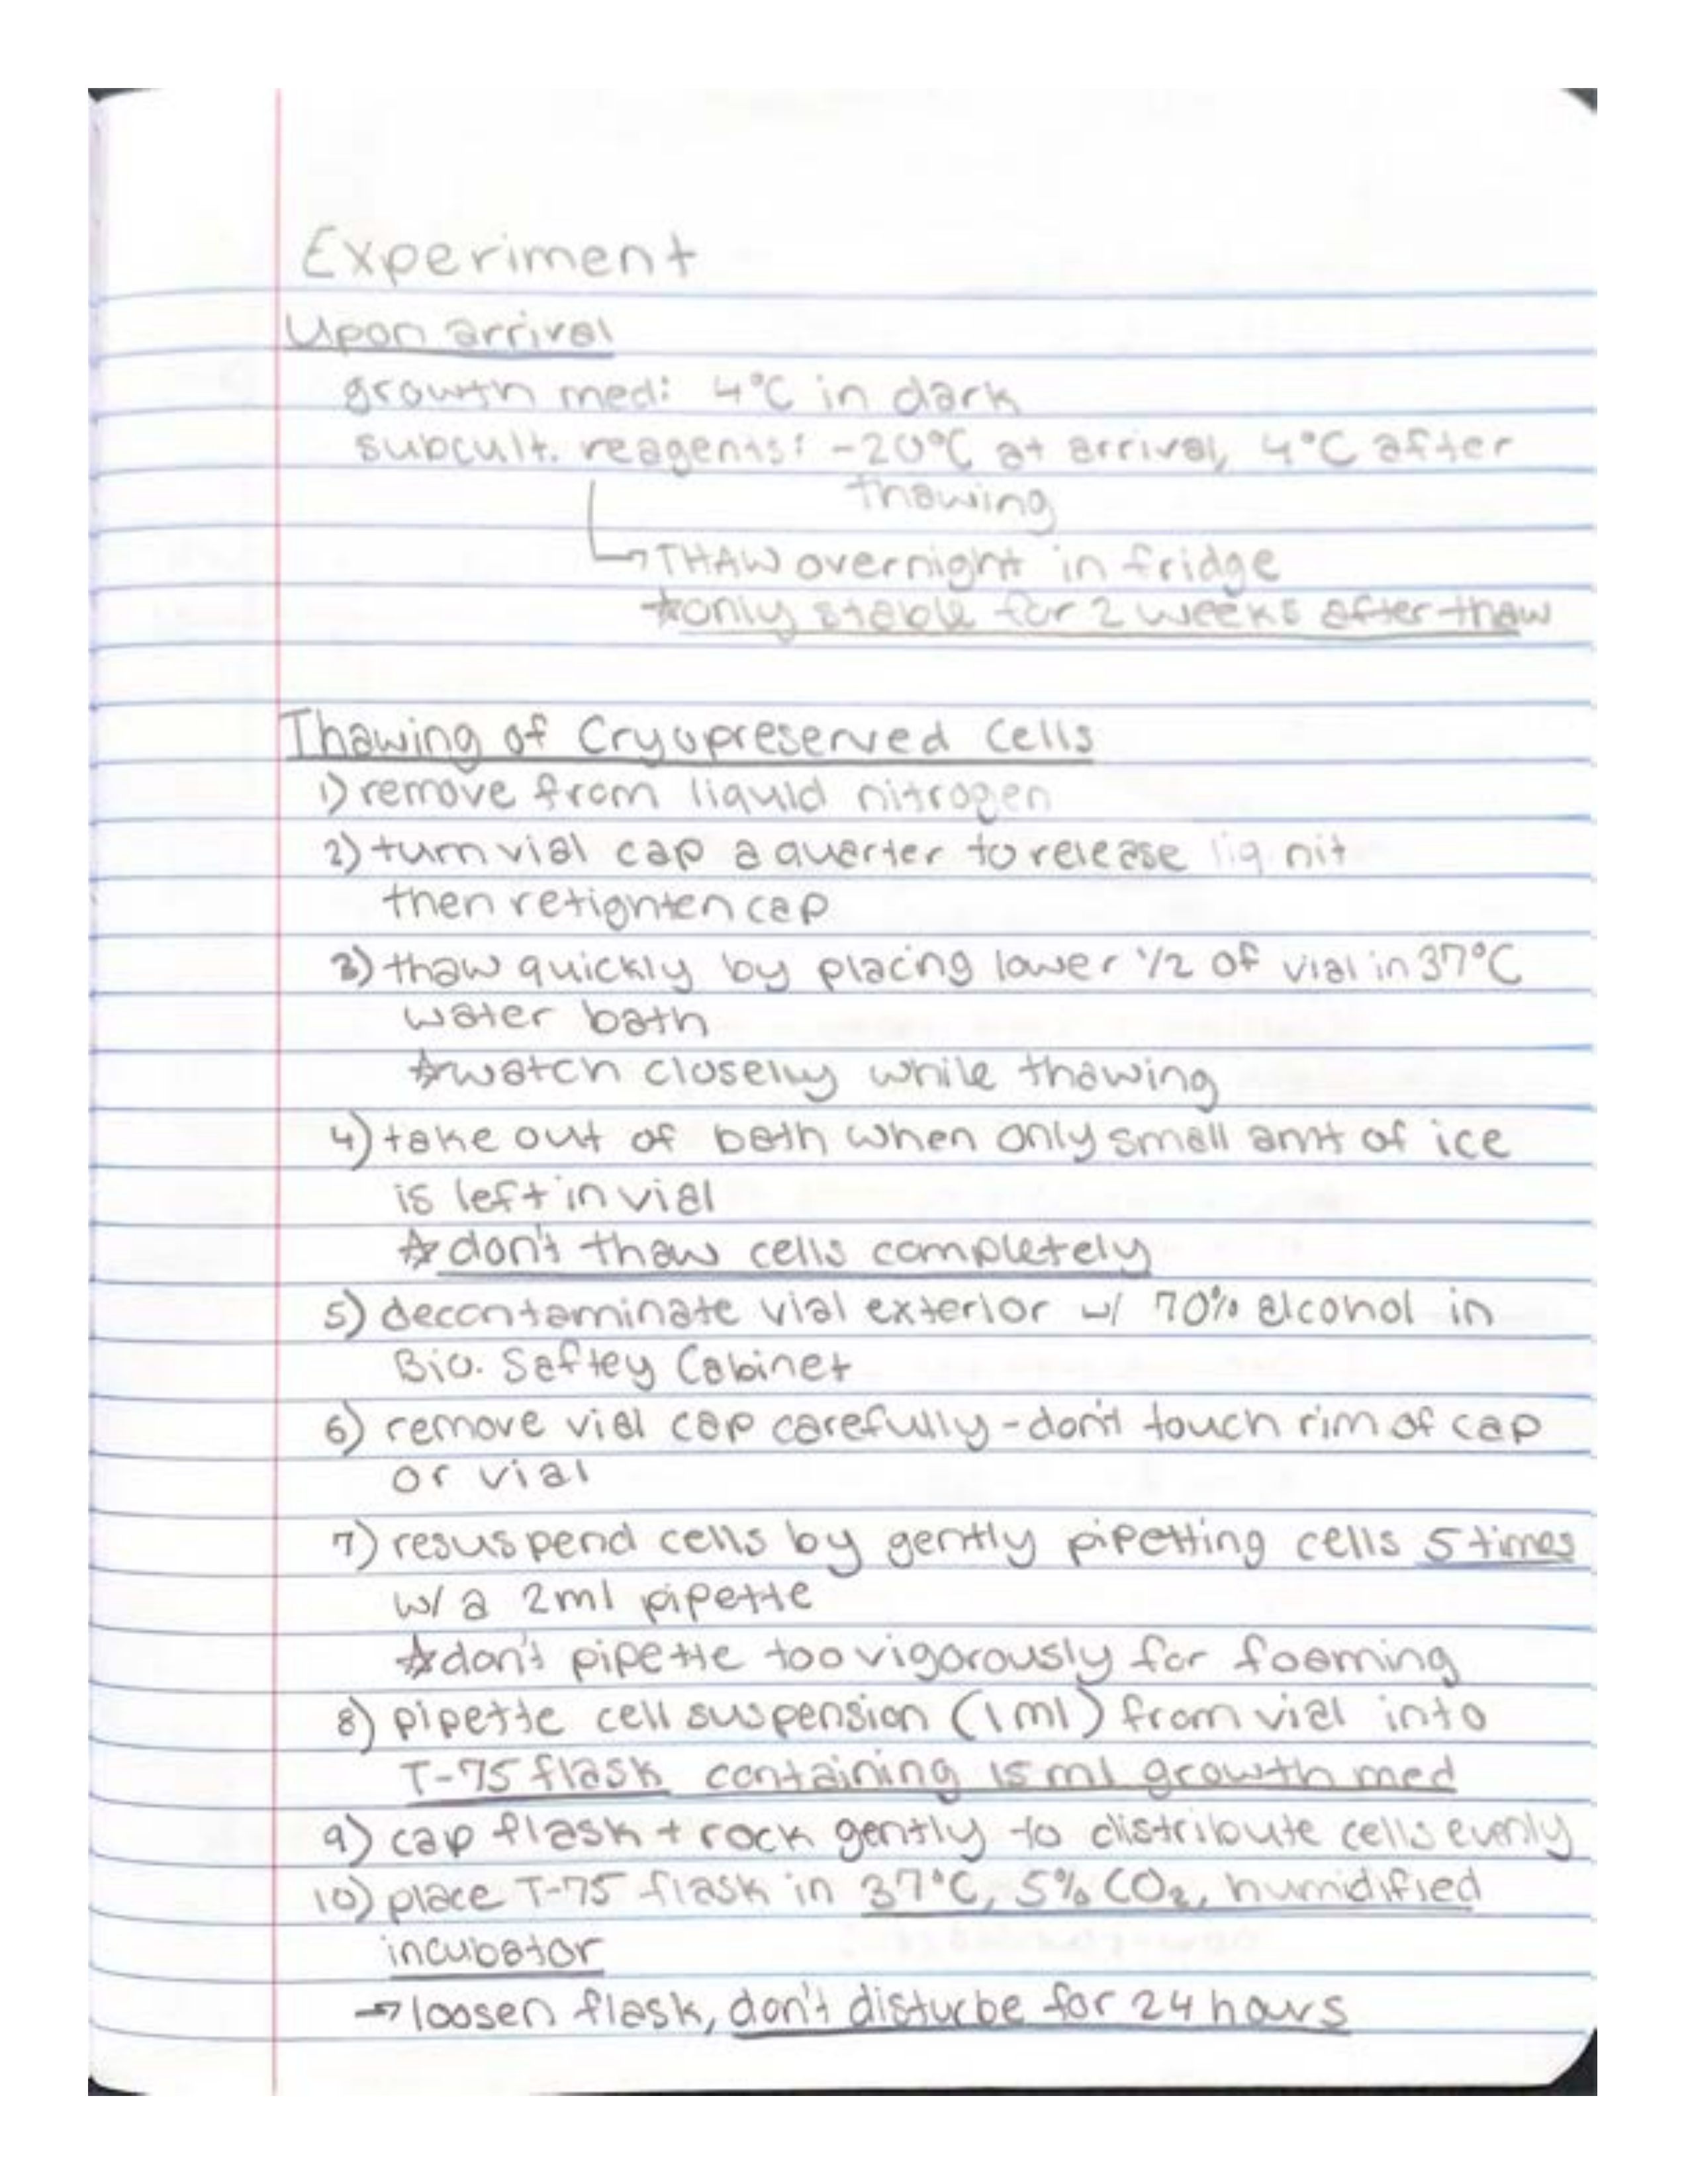 Experiment
Upon arrival
growth med: 4°C in dark
subcult. reagents: -20°C at arrival, 4°C after
thawing
→THAW overnight in fridge
☆only stable for 2 weeks after thaw
Thawing of Cryopreserved Cells
1) remove from liquid nitrogen
2) turn vial cap a quarter to release liq nit
then retighten cap
3) thaw quickly by placing lower 1/2 of vial in 37°C
water bath
☆watch closely while thawing
4) take out of bath when only small amt of ice
is left in vial
☆ don't thaw cells completely
5) decontaminate vial exterior w/ 70% alcohol in
Bio. Saftey Cabinet
6) remove vial cap carefully - don't touch rim of cap
or vial
7) resuspend cells by gently pipetting cells 5 times
w/ a 2ml pipette
☆don't pipette too vigorously for foaming
8) pipette cell suspension (1ml) from vial into
T-75 flask containing 15 ml growth med
9) cap flask + rock gently to distribute cells evenly
10) place T-75 flask in 37°C, 5% CO₂, humidified
incubator
→ loosen flask, don't disturbe for 24 hours